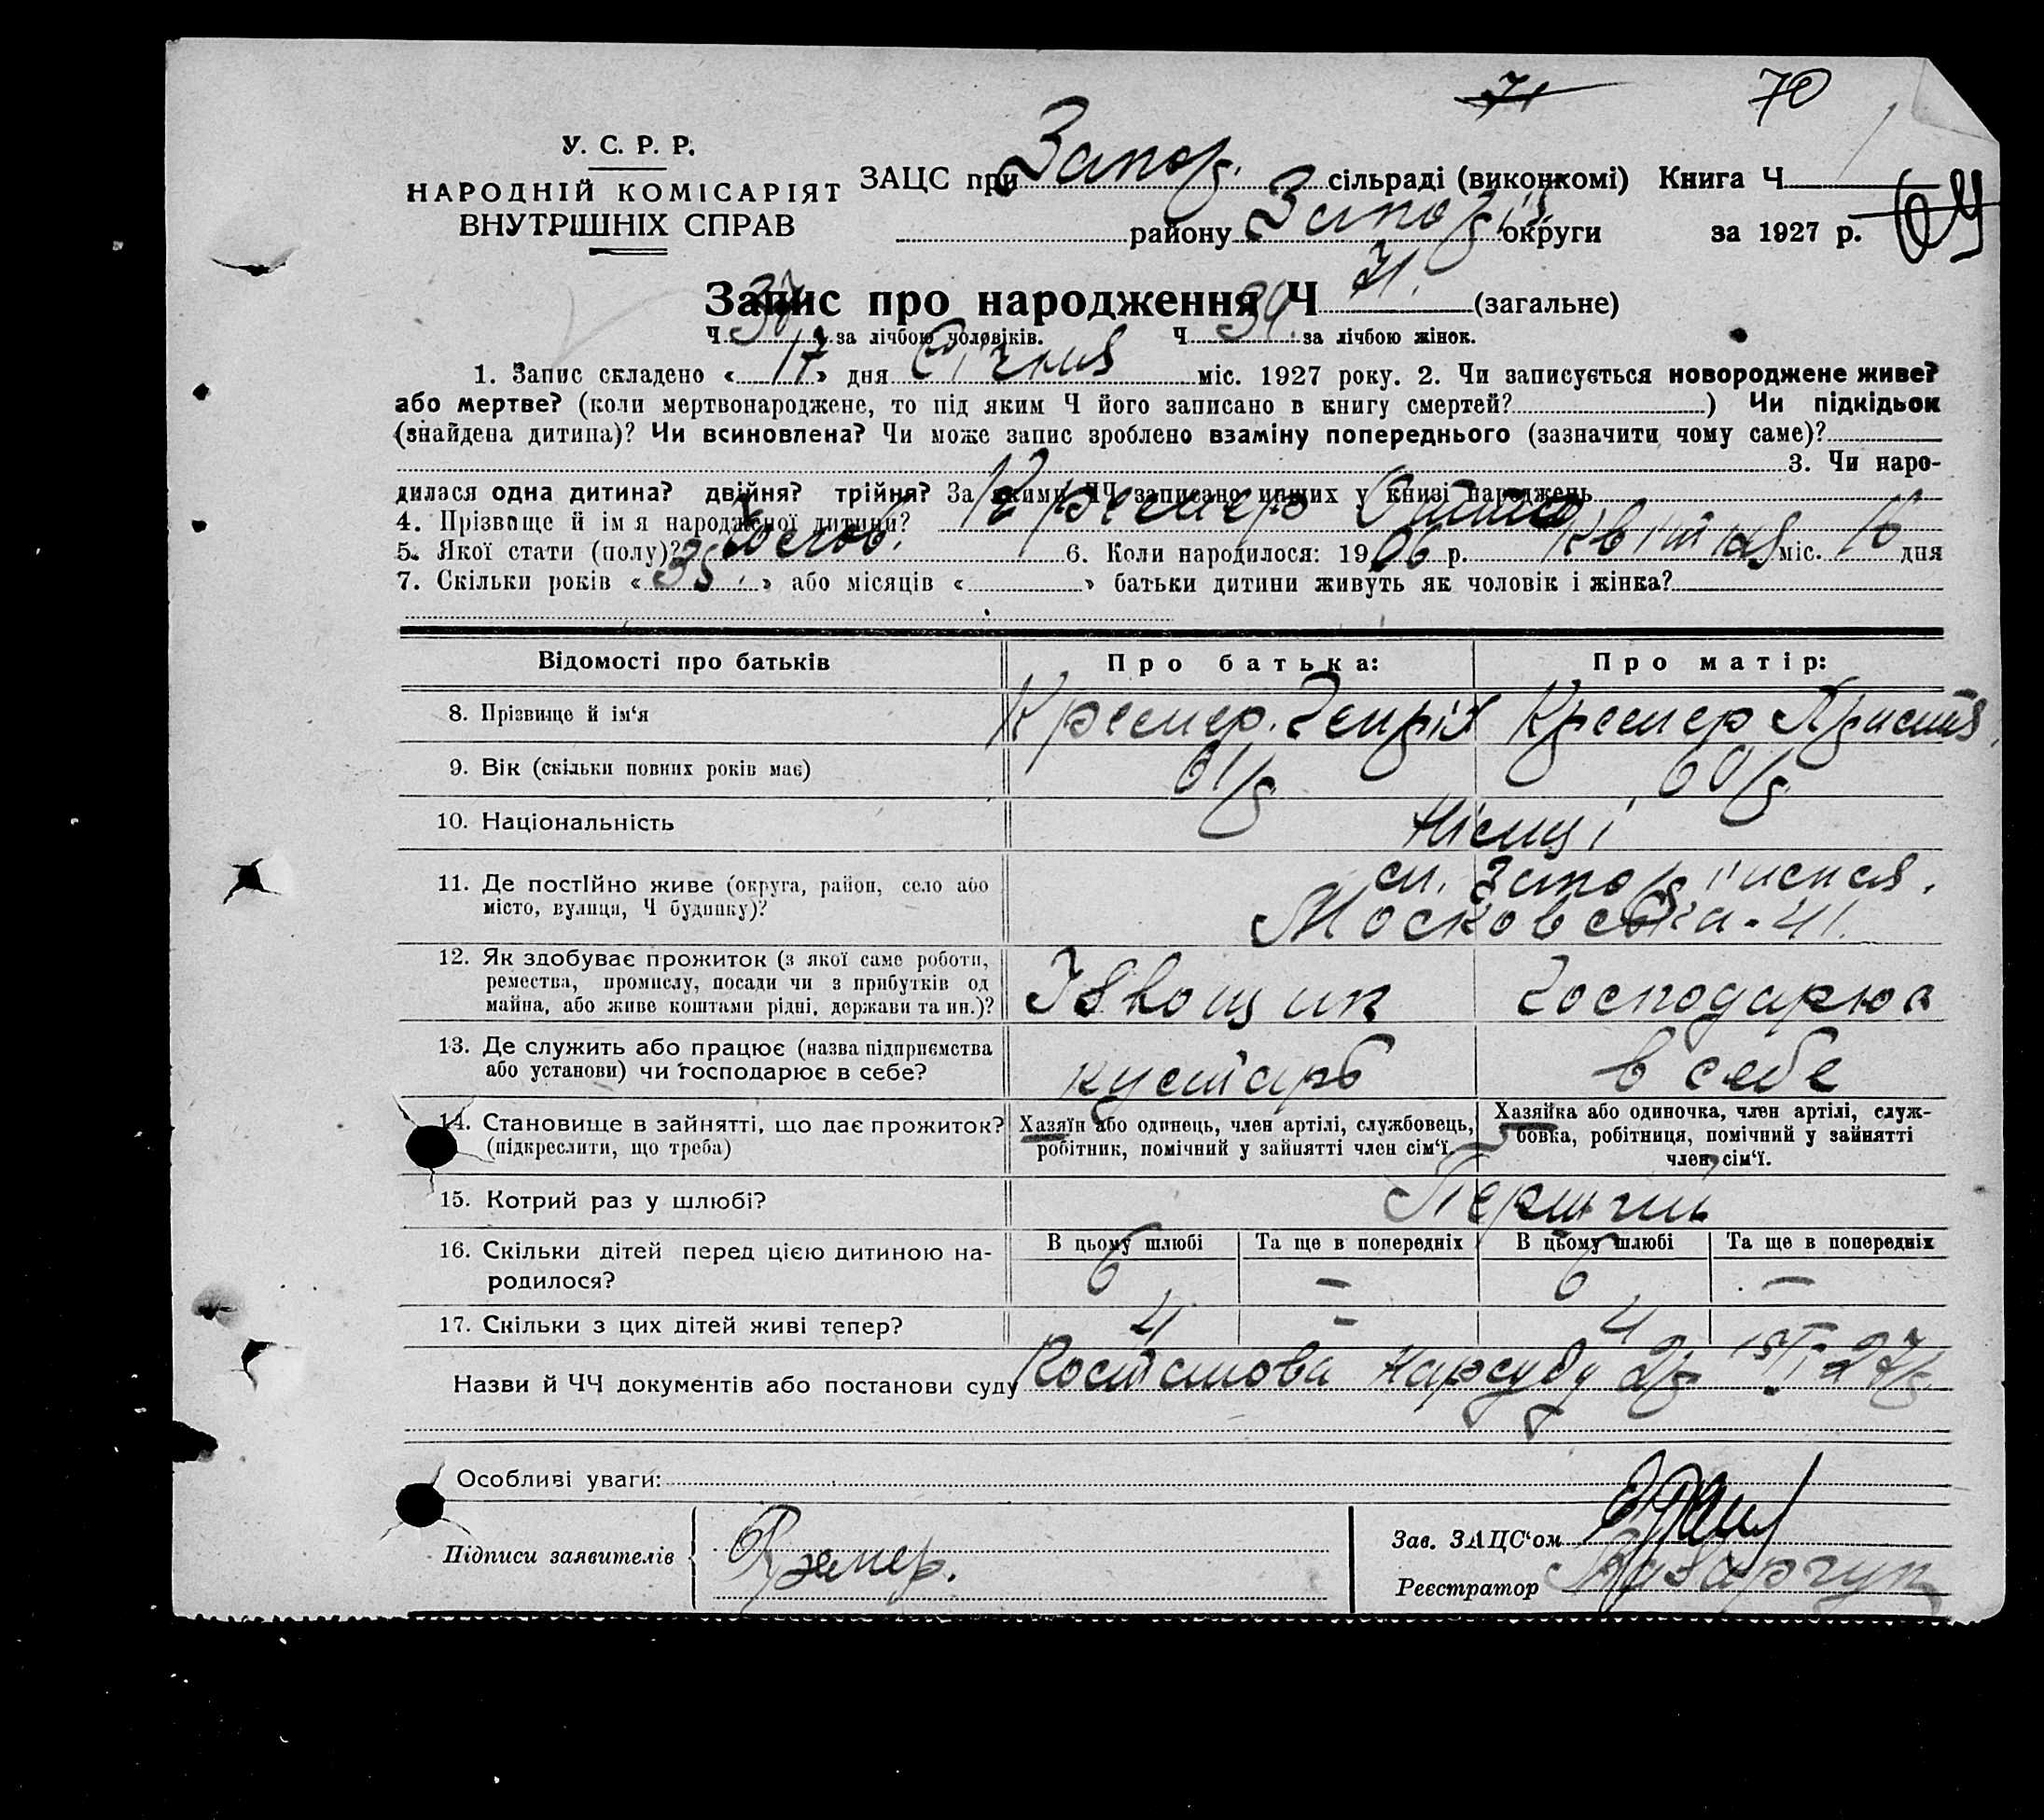 71 70
У. С. Р. Р.
НАРОДНІЙ КОМІСАРІЯТ
ВНУТРІШНІХ СПРАВ
ЗАЦС при Запоріз. сільраді (виконкомі) Книга Ч
району Запоріз округи за 1927 р. 69
Запис про народження Ч 71. (загальне)
Ч 37 за лічбою чоловіків. Ч 34. за лічбою жінок.
1. Запис складено « 17 » дня Січня міс. 1927 року. 2. Чи записується новороджене живе?
або мертве? (коли мертвонароджене, то під яким Ч його записано в книгу смертей? ) Чи підкідьок
(знайдена дитина)? Чи всиновлена? Чи може запис зроблено взаміну попереднього (зазначити чому саме)?
3. Чи наро-
дилася одна дитина? двійня? трійня? За якими ЧЧ записано инших у книзі народжень
4. Прізвище й імя народженої дитини? Кремер Отто
5. Якої стати (полу)? чолов. 6. Коли народилося: 1906 р. Квітня міс. 16 дня
7. Скільки років « 35 » або місяців « » батьки дитини живуть як чоловік і жінка?
Відомості про батьків Про батька: Про матір:
8. Прізвище й ім‘я Кремер Генріх Кремер
9. Вік (скільки повних років має) 61 р 60 р
10. Національність Німці
11. Де постійно живе (округа, район, село або
місто, вулиця, Ч будинку)? Московська-41.
12. Як здобуває прожиток (з якої саме роботи,
ремества, промислу, посади чи з прибутків од
майна, або живе коштами рідні, держави та ин.)? Ізвощик Господарює
13. Де служить або працює (назва підприємства
або установи) чи господарює в себе? кустарь в себе
14. Становище в зайнятті, що дає прожиток?
(підкреслити, що треба)
Хазяїн або одинець, член артілі, службовець,
робітник, помічний у зайнятті член сім‘ї.
Хазяйка або одиночка, член артілі, служ-
бовка, робітниця, помічний у зайнятті
член сім‘ї.
15. Котрий раз у шлюбі? Перший
16. Скільки дітей перед цією дитиною на-
родилося?
В цьому шлюбі Та ще в попередніх В цьому шлюбі Та ще в попередніх
6 – 6 –
17. Скільки з цих дітей живі тепер? 4 – 4
Назви й ЧЧ документів або постанови суду Нарсуду 27 р
Особливі уваги:
Підписи заявителів Кремер.
Зав. ЗАЦС‘ом
Реєстратор